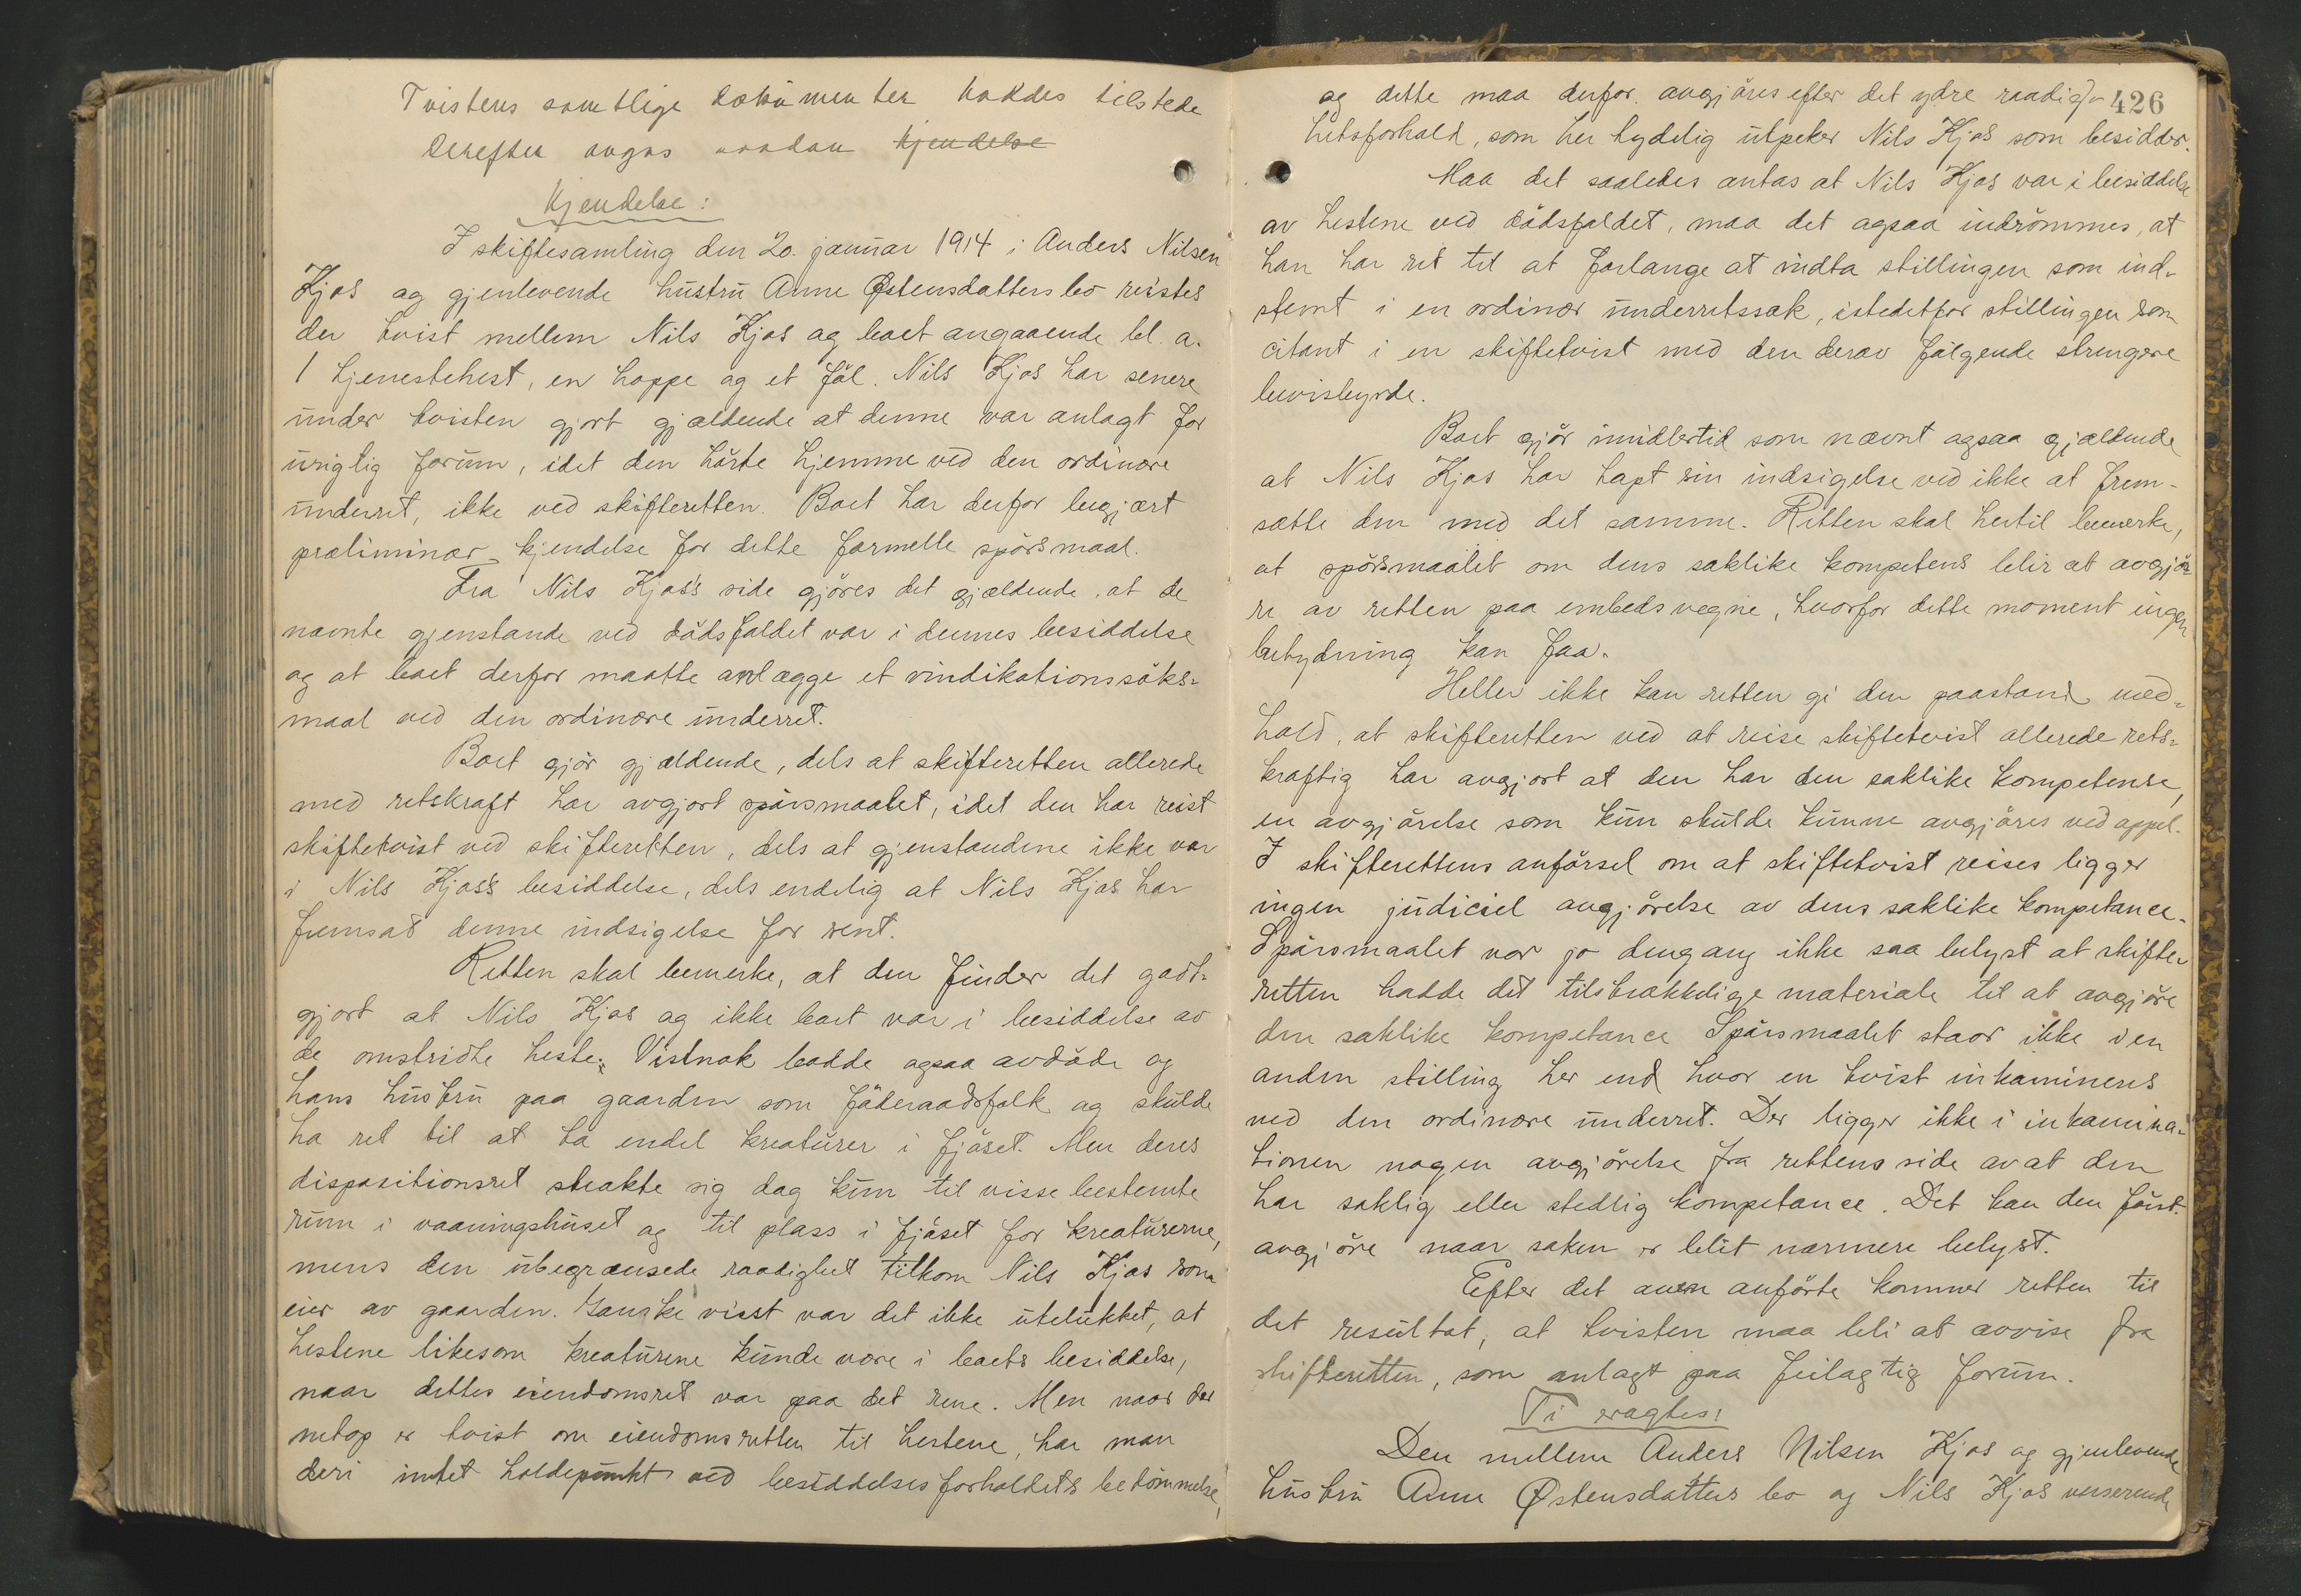 Tvistens samtlige dokumenter haddes tilstede
Derefter avgas saadan kjendelse
Kjendelse:
I skiftesamling den 20. januar 1914 i Anders Nilsen
Kjos og gjenlevende hustru Anne Østensdatters bo reistes
der tvist mellem Nils Kjos og boet angaaende bl. a.
1 tjenestehest, en hoppe og et føl. Nils Kjos har senere
under tvisten gjort gjældende at denne var anlagt for
urigtig forum, idet den hørte hjemme ved den ordinære
underret, ikke ved skifteretten. Boet har derfor begjært
præliminær kjendelse for dette formelle spørsmaal.
Fra Nils Kjos's side gjøres det gjældende, at de
nævnte gjenstande ved dødsfaldet var i dennes besiddelse
og at boet derfor maatte anlægge et vindikationssøks-
maal ved den ordinære underret.
Boet gjør gjældende, dels at skifteretten allerede
med retskraft har avgjort spørsmaalet, idet den har reist
skiftetvist ved skifteretten, dels at gjenstandene ikke var
i Nils Kjos's besiddelse, dels endelig at Nils Kjos har
fremsat denne indsigelse for sent.
Retten skal bemerke, at den finder det godt-
gjort at Nils Kjos og ikke boet var i besiddelse av
de omstridte heste. Vistnok bodde ogsaa avdøde og
hans hustru paa gaarden som føderaadsfolk og skulde
ha ret til at ha endel kreaturer i fjøset. Men deres
dispositionsret strakte sig dog kun til visse bestemte
rum i vaaningshuset og til plass i fjøset for kreaturerne,
mens den ubegrænsede raadighet tilkom Nils Kjos som
eier av gaarden. Ganske visst var det ikke utelukket, at
hestene likesom kreaturene kunde være i boets besiddelse,
naar dettes eiendomsret var paa det rene. Men naar der
netop er tvist om eiendomsretten til hestene, har man
deri intet holdepunkt ved besiddelsesforholdets bedømmelse,
426
og dette maa derfor avgjøres efter det ydre raadig-
hetsforhold, som her tydelig utpeker Nils Kjos som besidder.
Maa det saaledes antas at Nils Kjos var i besiddelse
av hestene ved dødsfaldet, maa det ogsaa indrømmes, at
han har ret til at forlange at indta stillingen som ind-
stemt i en ordinær underretssak, istedetfor stillingen som
citant i en skiftetvist med den derav følgende strengere
bevisbyrde.
Boet gjør imidlertid som nævnt ogsaa gjældende
at Nils Kjos har tapt sin indsigelse ved ikke at frem-
sætte den med det samme. Retten skal hertil bemerke,
at spørsmaalet om dens saklike kompetens blir at avgjø-
re av retten paa embeds vegne, hvorfor dette moment ingen
betydning kan faa.
Heller ikke kan retten gi den paastand med-
hold, at skifteretten ved at reise skiftetvist allerede rets-
kraftig har avgjort at den har den saklike kompetense,
en avgjørelse som kun skulde kunne avgjøres ved appel.
I skifterettens anførsel om at skiftetvist reises ligger
ingen judiciel avgjørelse av dens saklike kompetance.
Spørsmaalet var jo dengang ikke saa belyst at skifte-
retten hadde det tilstrækkelige materiale til at avgjøre
den saklike kompetance Spørsmaalet staar ikke i en
anden stilling her end hvor en tvist inkamineres
ved den ordinære underret. Der ligger ikke i inkamina-
tionen nogen avgjørelse fra rettens side av at den
har saklig eller stedlig kompetance. Det kan den først
avgjøre naar saken er blit nærmere belyst.
Efter det anførte kommer retten til
det resultat, at tvisten maa bli at avvise fra
skifteretten, som anlagt paa feilagtig forum.
Ti eragtes:
Den mellem Anders Nilsen Kjos og gjenlevende
hustru Anne Østensdatters bo og Nils Kjos verserende